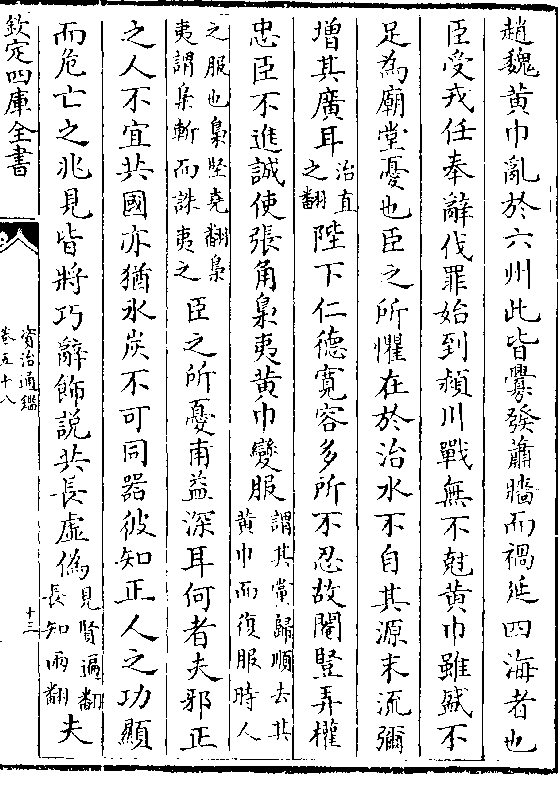 趙魏黄巾亂於六州此皆釁發蕭牆而禍延四海者也
臣受戎任奉辭伐罪始到潁川戰無不尅黄巾雖盛不
足為廟堂憂也臣之所懼在於治水不自其源末流彌
增其廣耳治直之翻陛下仁德寛容多所不忍故閹豎弄權
忠臣不進誠使張角梟夷黄巾變服謂其黨歸順去其黄巾而復服時人
之服也梟堅堯翻梟夷謂梟斬而誅夷之臣之所憂甫益深耳何者夫邪正
之人不宜共國亦猶氷炭不可同器彼知正人之功顯
而危亡之兆見皆將巧辭飾說共長虚偽見賢遍翻長知兩翻夫
欽定四庫全書
資治通鑑
卷五十八
十三